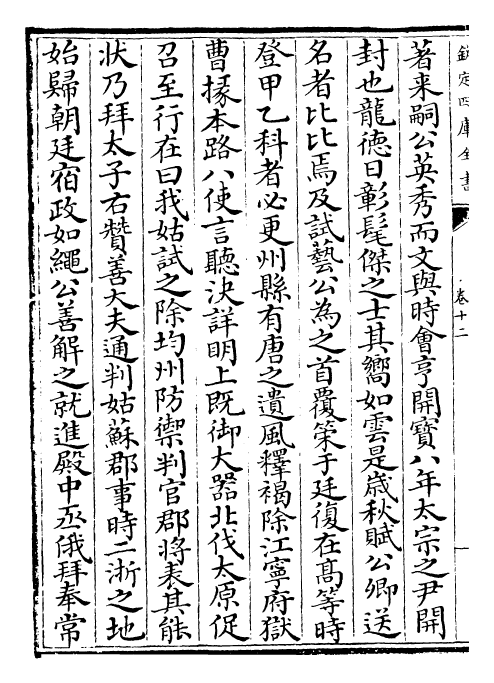 欽定四庫全書
卷十二
著来嗣公英秀而文與時會亨開寳八年太宗之尹開
封也龍德日彰髦傑之士其嚮如雲是歳秋賦公卿送
名者比比焉及試藝公為之首覆䇿于廷復在髙等時
登甲乙科者必更州縣有唐之遺風釋褐除江寧府獄
曹掾本路八使言聽決詳明上既御大器北伐太原促
召至行在曰我姑試之除均州防禦判官郡將表其能
狀乃拜太子右贊善大夫通判姑蘇郡事時二浙之地
始歸朝廷宿政如繩公善解之就進殿中丞俄拜奉常